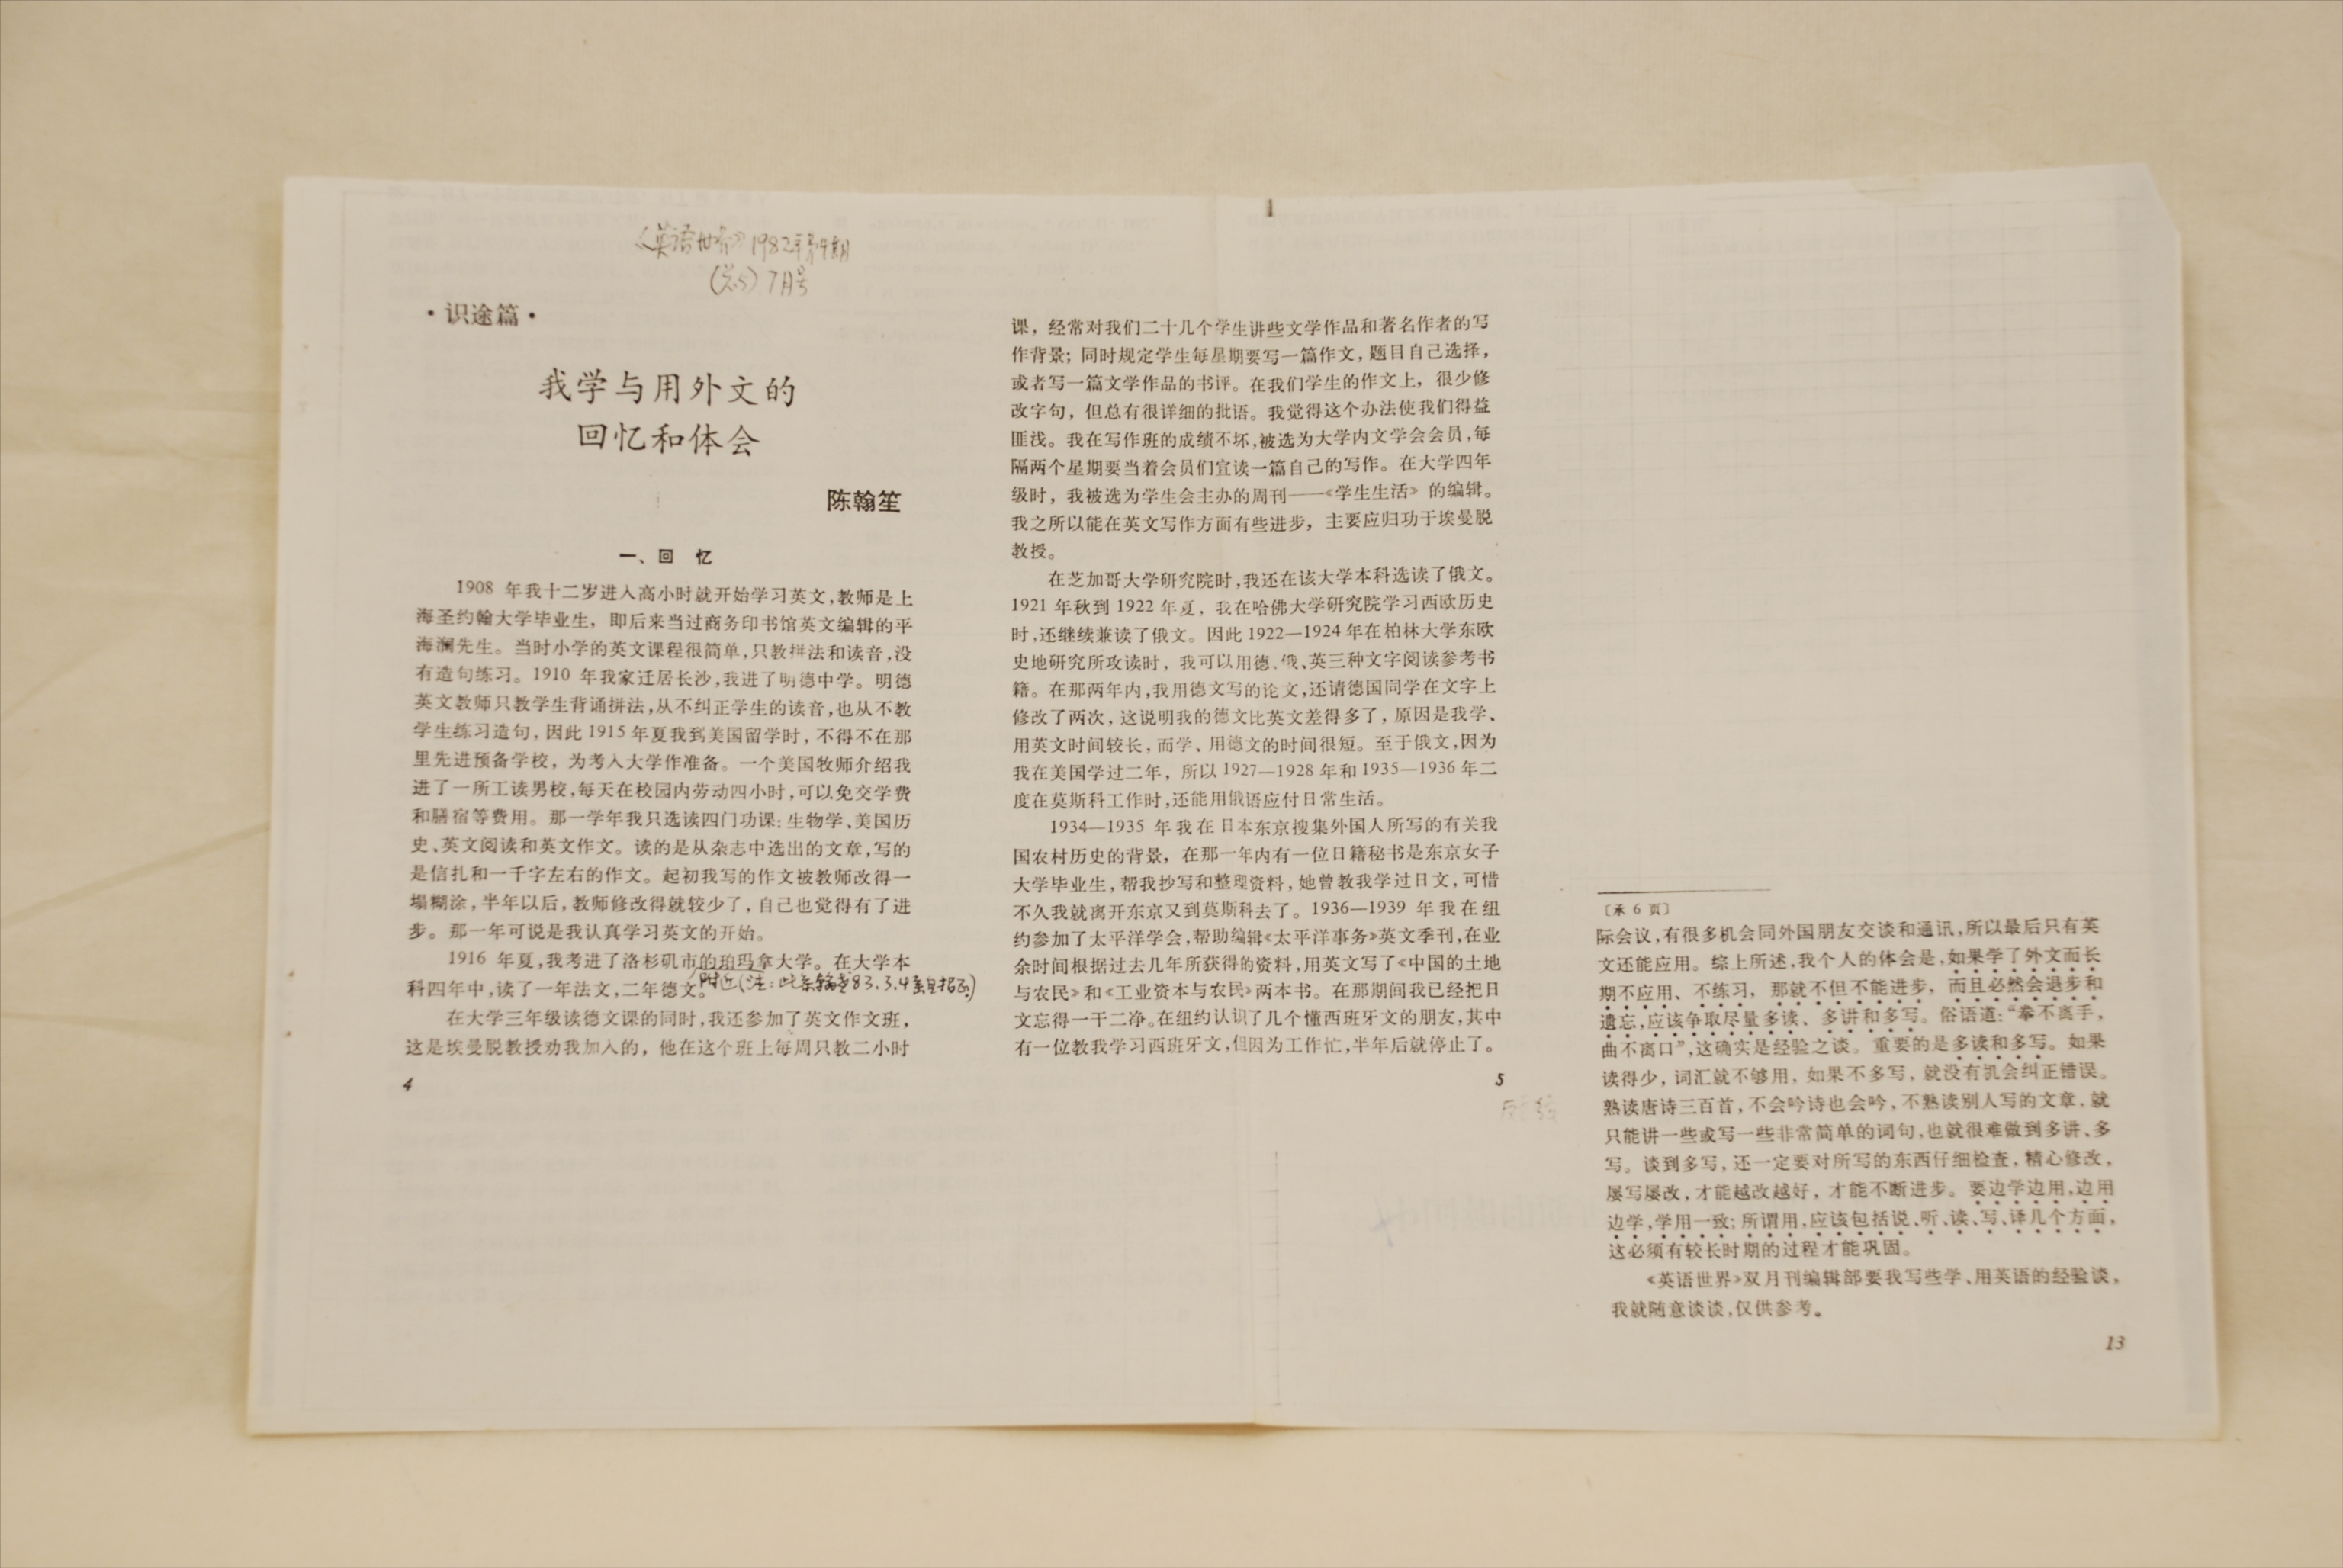 《英语世界》1982年第4期
(总5) 7月号
·识途篇·
我学与用外文的
回忆和体会
陈翰笙
一、回 忆
1908 年我十二岁进入高小时就开始学习英文，教师是上
海圣约翰大学毕业生，即后来当过商务印书馆英文编辑的平
海澜先生。当时小学的英文课程很简单，只教拼法和读音，没
有造句练习。1910 年我家迁居长沙，我进了明德中学。明德
英文教师只教学生背诵拼法，从不纠正学生的读音，也从不教
学生练习造句，因此 1915 年夏我到美国留学时，不得不在那
里先进预备学校，为考入大学作准备。一个美国牧师介绍我
进了一所工读男校，每天在校园内劳动四小时，可以免交学费
和膳宿等费用。那一学年我只选读四门功课：生物学、美国历
史、英文阅读和英文作文。读的是从杂志中选出的文章，写的
是信扎和一千字左右的作文。起初我写的作文被教师改得一
塌糊涂，半年以后，教师修改得就较少了，自己也觉得有了进
步。那一年可说是我认真学习英文的开始。
1916 年夏，我考进了洛杉矶市的珀玛拿大学。在大学本
附近(注：此系翰老83.3.4亲自指正)
科四年中，读了一年法文，二年德文。
在大学三年级读德文课的同时，我还参加了英文作文班，
这是埃曼脱教授劝我加入的，他在这个班上每周只教二小时
4
课，经常对我们二十几个学生讲些文学作品和著名作者的写
作背景；同时规定学生每星期要写一篇作文，题目自己选择，
或者写一篇文学作品的书评。在我们学生的作文上，很少修
改字句，但总有很详细的批语。我觉得这个办法使我们得益
匪浅。我在写作班的成绩不坏，被选为大学内文学会会员，每
隔两个星期要当着会员们宣读一篇自己的写作。在大学四年
级时，我被选为学生会主办的周刊——《学生生活》的编辑。
我之所以能在英文写作方面有些进步，主要应归功于埃曼脱
教授。
在芝加哥大学研究院时，我还在该大学本科选读了俄文。
1921 年秋到 1922 年夏，我在哈佛大学研究院学习西欧历史
时，还继续兼读了俄文。因此 1922—1924 年在柏林大学东欧
史地研究所攻读时，我可以用德、俄、英三种文字阅读参考书
籍。在那两年内，我用德文写的论文，还请德国同学在文字上
修改了两次，这说明我的德文比英文差得多了，原因是我学、
用英文时间较长，而学、用德文的时间很短。至于俄文，因为
我在美国学过二年，所以 1927—1928 年和 1935—1936 年二
度在莫斯科工作时，还能用俄语应付日常生活。
1934—1935 年我在日本东京搜集外国人所写的有关我
国农村历史的背景，在那一年内有一位日籍秘书是东京女子
大学毕业生，帮我抄写和整理资料，她曾教我学过日文，可惜
不久我就离开东京又到莫斯科去了。1936—1939 年我在纽
约参加了太平洋学会，帮助编辑《太平洋事务》英文季刊，在业
余时间根据过去几年所获得的资料，用英文写了《中国的土地
与农民》和《工业资本与农民》两本书。在那期间我已经把日
文忘得一干二净。在纽约认识了几个懂西班牙文的朋友，其中
有一位教我学习西班牙文，但因为工作忙，半年后就停止了。
5
〔承 6 页〕
际会议，有很多机会同外国朋友交谈和通讯，所以最后只有英
文还能应用。综上所述，我个人的体会是，如果学了外文而长
期不应用、不练习，那就不但不能进步，而且必然会退步和
遗忘，应该争取尽量多读、多讲和多写。俗语道：“拳不离手，
曲不离口”，这确实是经验之谈。重要的是多读和多写。如果
读得少，词汇就不够用，如果不多写，就没有机会纠正错误。
熟读唐诗三百首，不会吟诗也会吟，不熟读别人写的文章，就
只能讲一些或写一些非常简单的词句，也就很难做到多讲、多
写。谈到多写，还一定要对所写的东西仔细检查，精心修改，
屡写屡改，才能越改越好，才能不断进步。要边学边用，边用
边学，学用一致；所谓用，应该包括说、听、读、写、译几个方面，
这必须有较长时期的过程才能巩固。
《英语世界》双月刊编辑部要我写些学、用英语的经验谈，
我就随意谈谈，仅供参考。
13